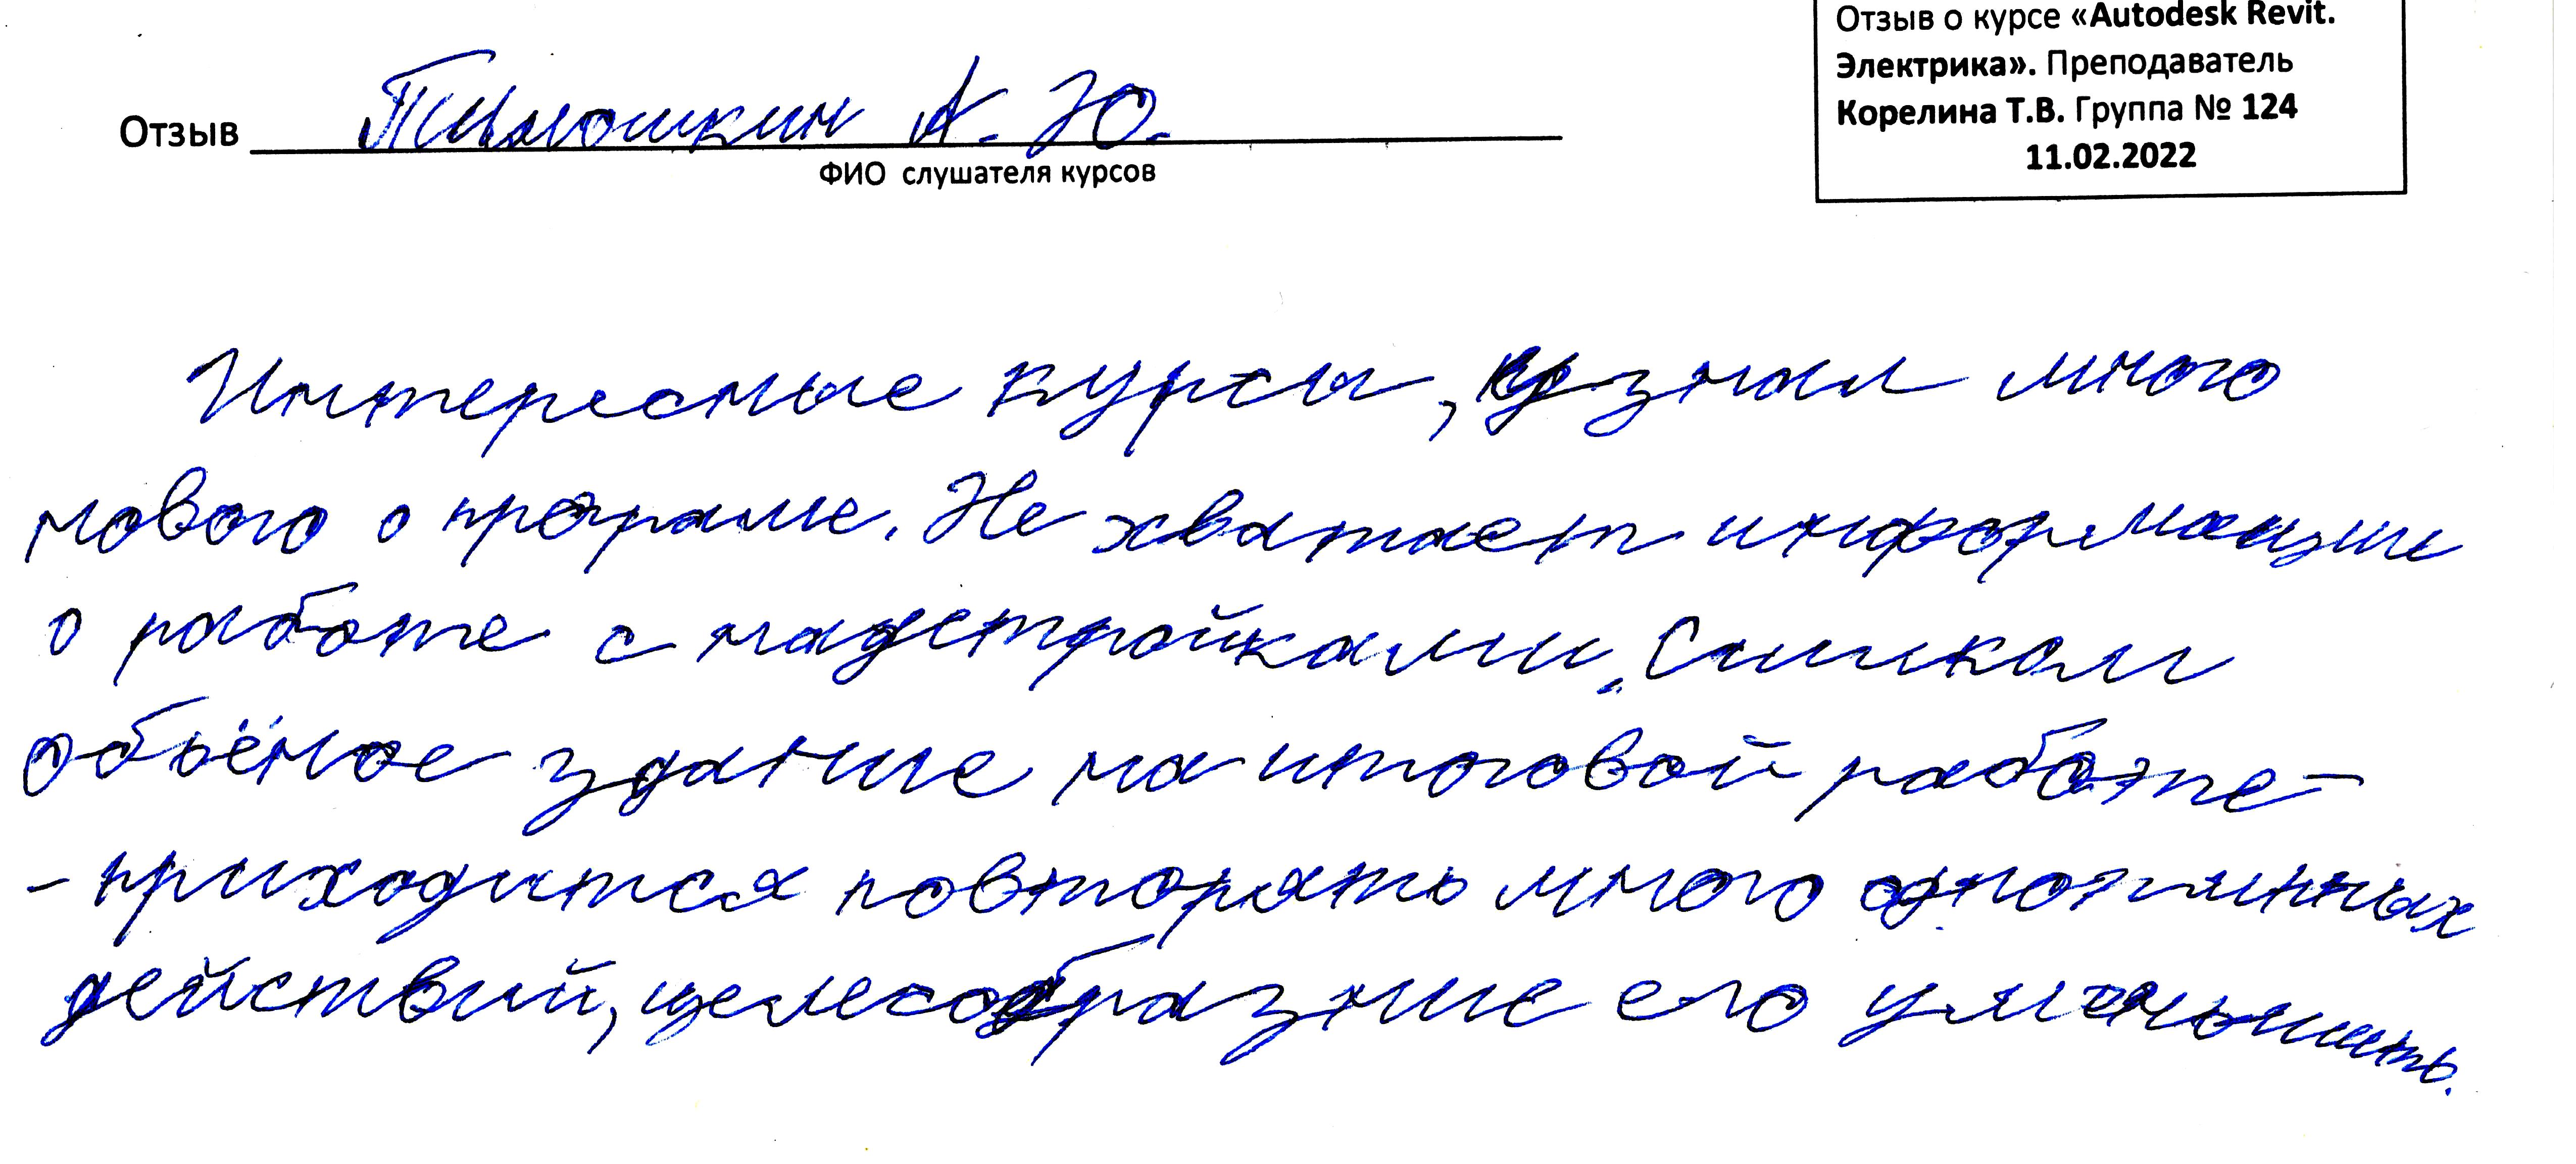 Отзыв о курсе «Autodesk Revit.
Электрика». Преподаватель
Корелина Т.В. Группа № 124
11.02.2022
Отзыв А. Ю.
ФИО слушателя курсов
Интересные курсы, узнал много
нового о програме. Не хватает информации
о работе с надстройками. Слишком
объёмое здание на итоговой работе -
- приходится повторять много однотипных
действий, целесобразние его уменьшить.